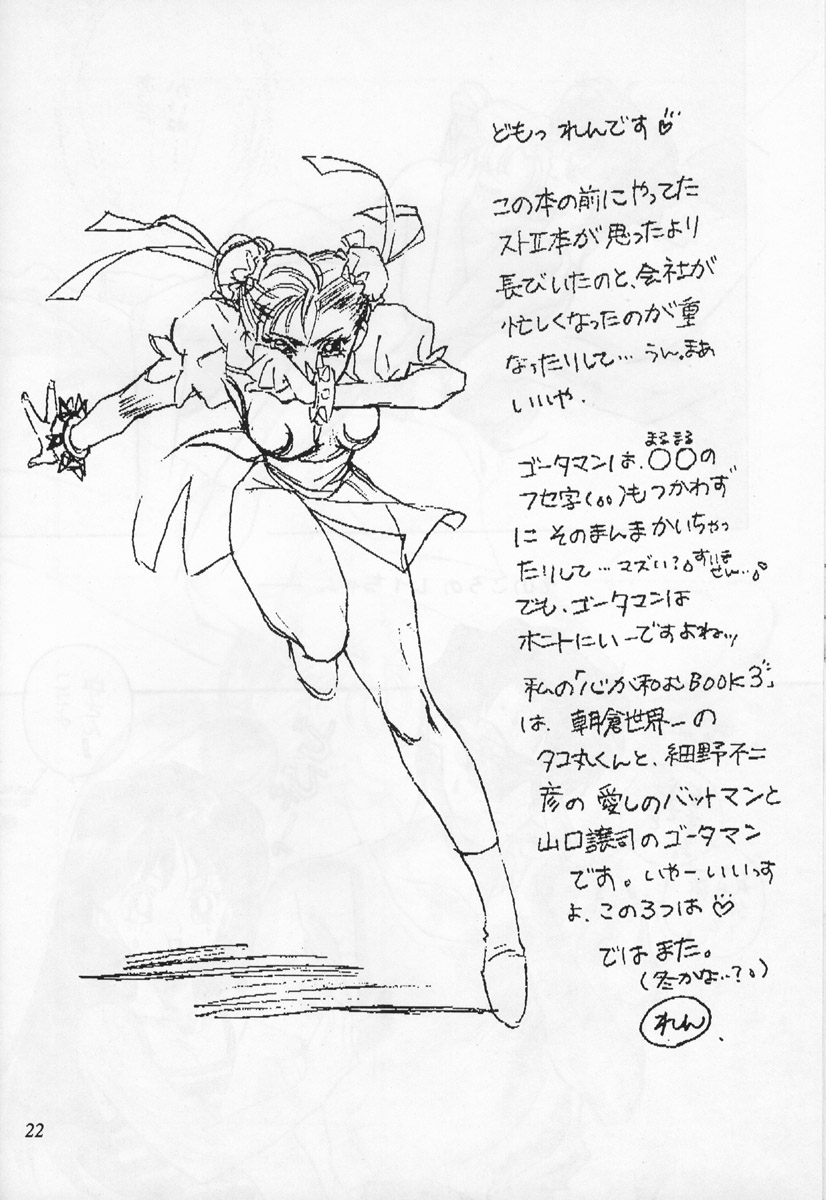 どもっ れんです♡
この本の前にやってた
ストⅡ本が思ったより
長びいたのと、会社が
忙しくなったのが重
なったりして…うん。まあ
いいや.
まるまる
ゴータマンは、○○の
フセ字(。。)もつかわず
に そのまんまかいちゃっ
たりして…マズい?。すいま
せん…。
でも、ゴータマンは
ホントにいーですよねッ
私の「心が和むBOOK3」
は、朝倉世界一の
タコ丸くんと、細野不二
彦の 愛しのバットマンと
山口譲司のゴータマン
です。いやー、いいっす
よ、この3つは♡
ではまた。
(冬かな…?。)
れん.
22